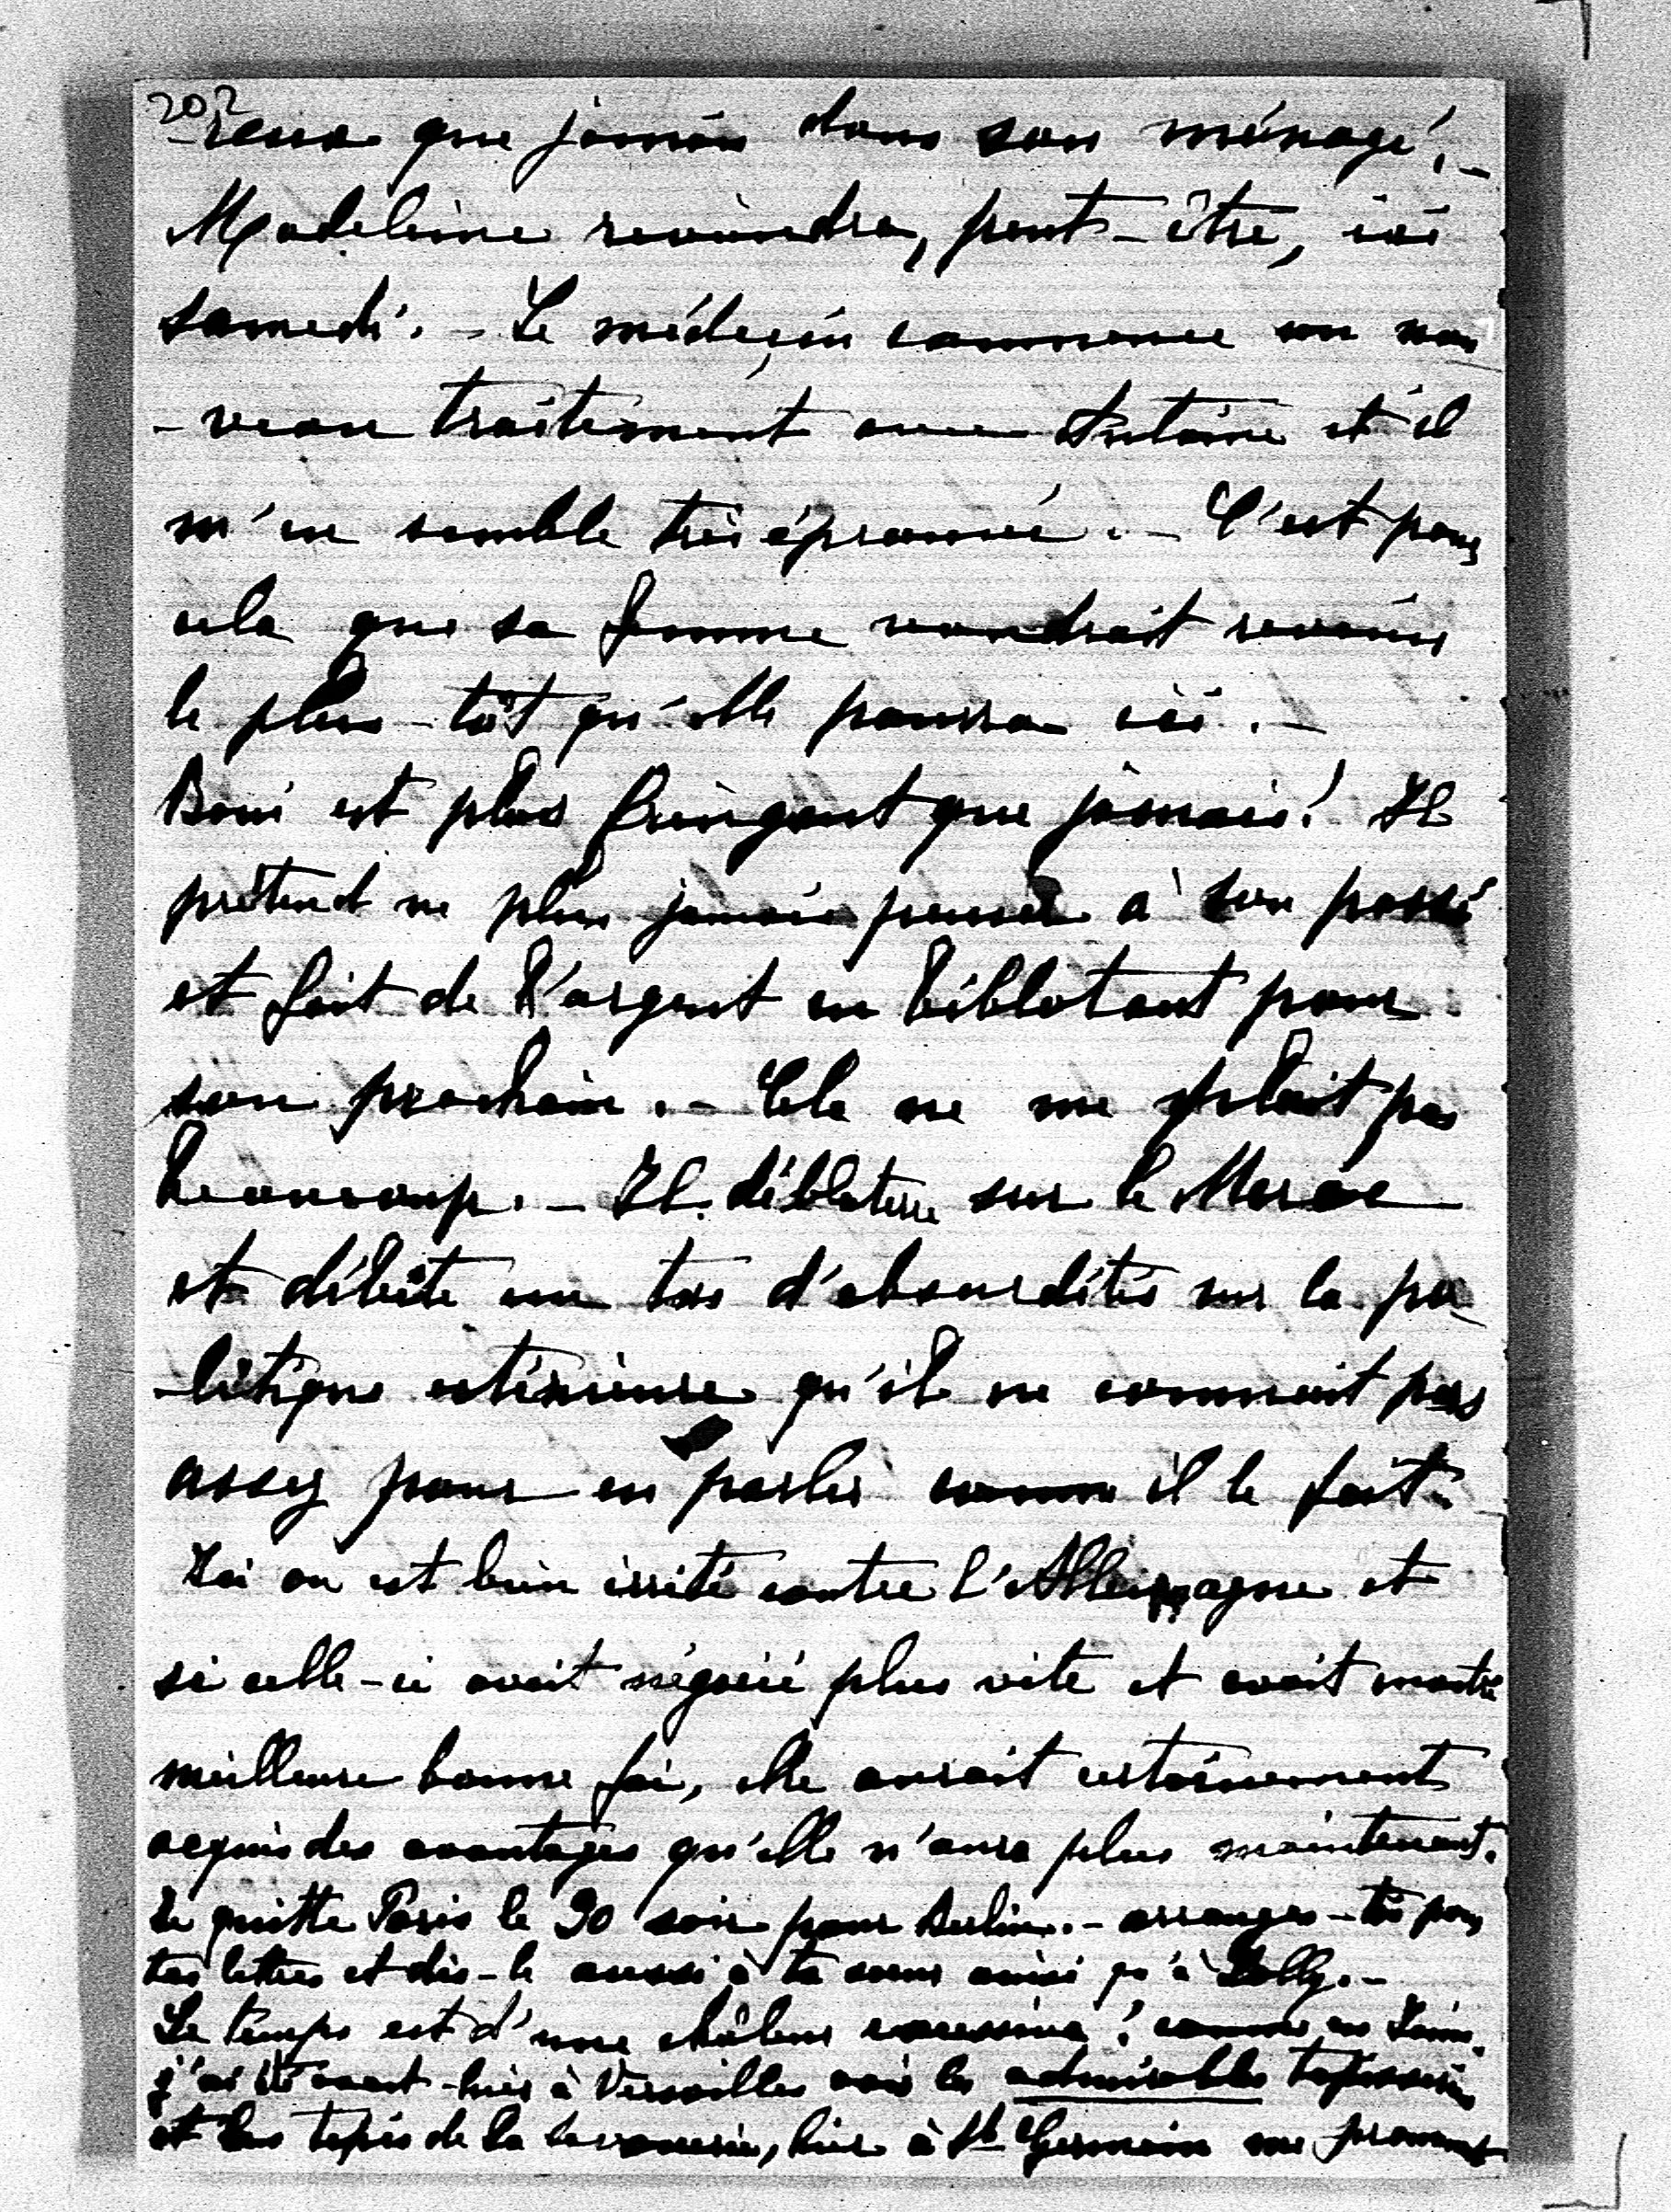 202
-reux que jamais dans son ménage!._
Madeleine reviendra, peut-être, ici
samedi. - Le médecin commence un nou
-veau traitement avec Antoine et il
m'en semble très éprouvé. - C'est pour
cela que sa femme voudrait revenir
le plus-tôt qu'elle pourra ici. -
Boni est plus fringant que jamais! Il
prétend ne plus jamais penser à son passé
et fait de l'argent en biblotant pour
son prochain. - Cela ne me plait pas
beaucoup. - Il déblatère sur le Maroc
et débite un tas d'absurdités sur la po
-litique extérieure qu'il ne connait pas
assez pour en parler comme il le fait.
Ici on est bien irrité contre l'Allemagne et
si celle-ci avait négocié plus vite et avait montré
meilleure bonne foi, elle aurait certainement
acquis des avantages qu'elle n'aura plus maintenant.
Je quitte Paris le 30 soir pour Berlin. - arranges-toi pour
tes lettres et dis-le aussi à ta soeur ainsi qu'à Dolly. -
Le temps est d'une chaleur excessive! comme en Juin.
j'ai été avant-hier à Versailles voir les admirables tapisseries
et les tapis de la savonnerie, hier à St Germain me promener